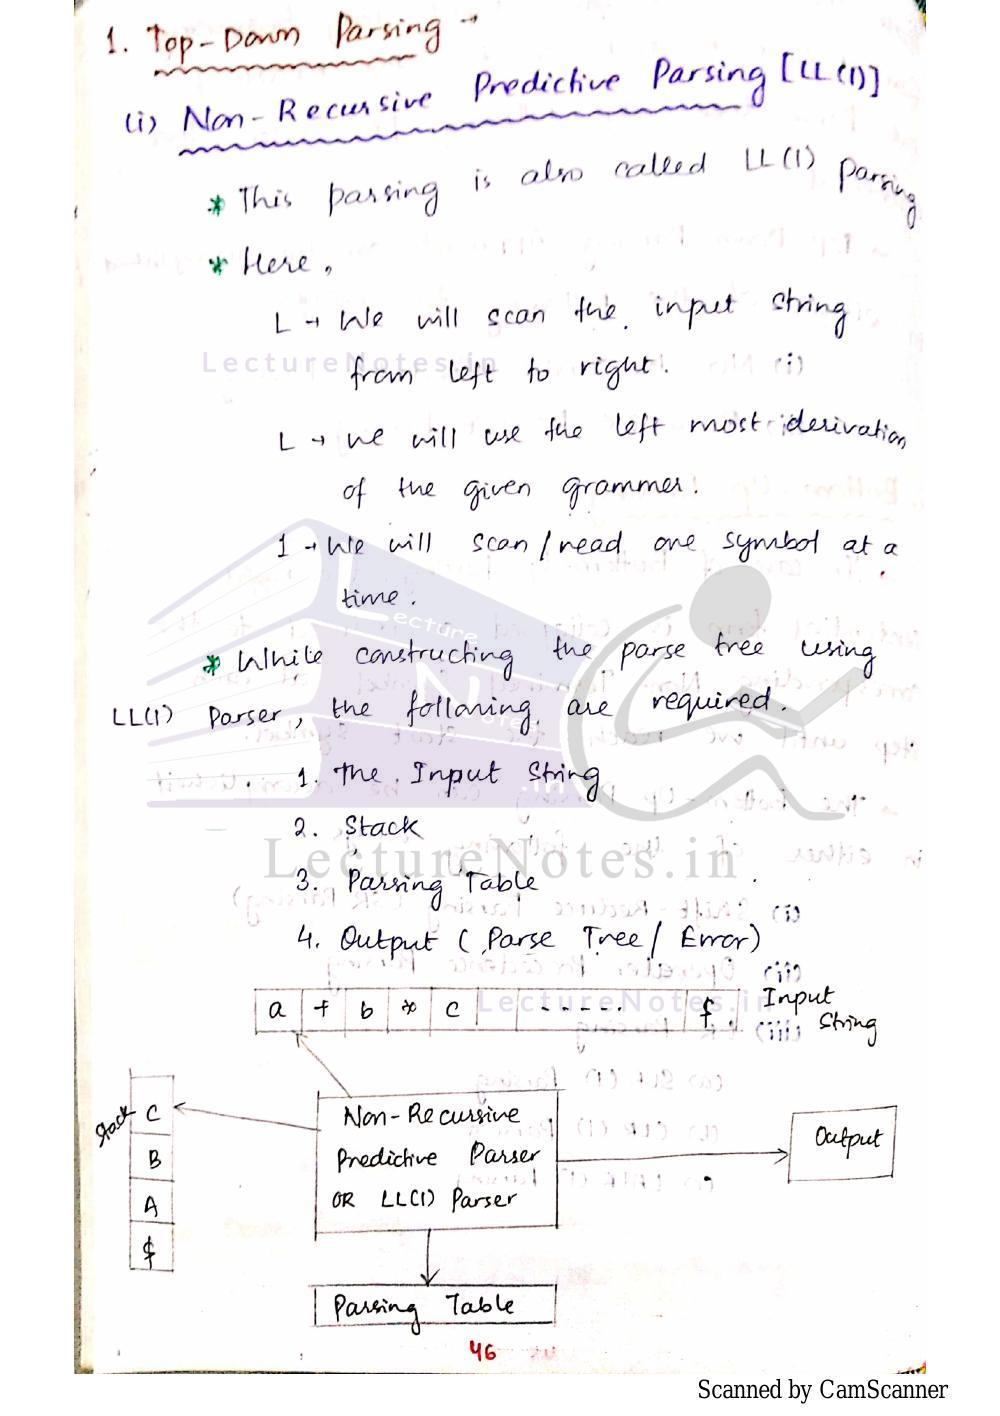 1. Top-Down Parsing →
(i) Non-Recursive Predictive Parsing [LL(1)]
* This parsing is also called LL(1) parsing
* Here,
L → We will scan the input string
LectureNotes.in
from left to right.
L → we will use the left most derivation
of the given grammer.
1 → We will scan/read one symbol at a
time.
Lecture
Notes
.in
* While constructing the parse tree using
LL(1) Parser, the following are required.
1. The Input String
2. Stack
LectureNotes.in
3. Parsing Table
4. Output (Parse Tree/ Error)
a + b * c ----- $ Input
LectureNotes.in
String
Stack C
B
A
$
Non-Recursive
Predictive Parser
OR LL(1) Parser
Output
Parsing Table
46
Scanned by CamScanner